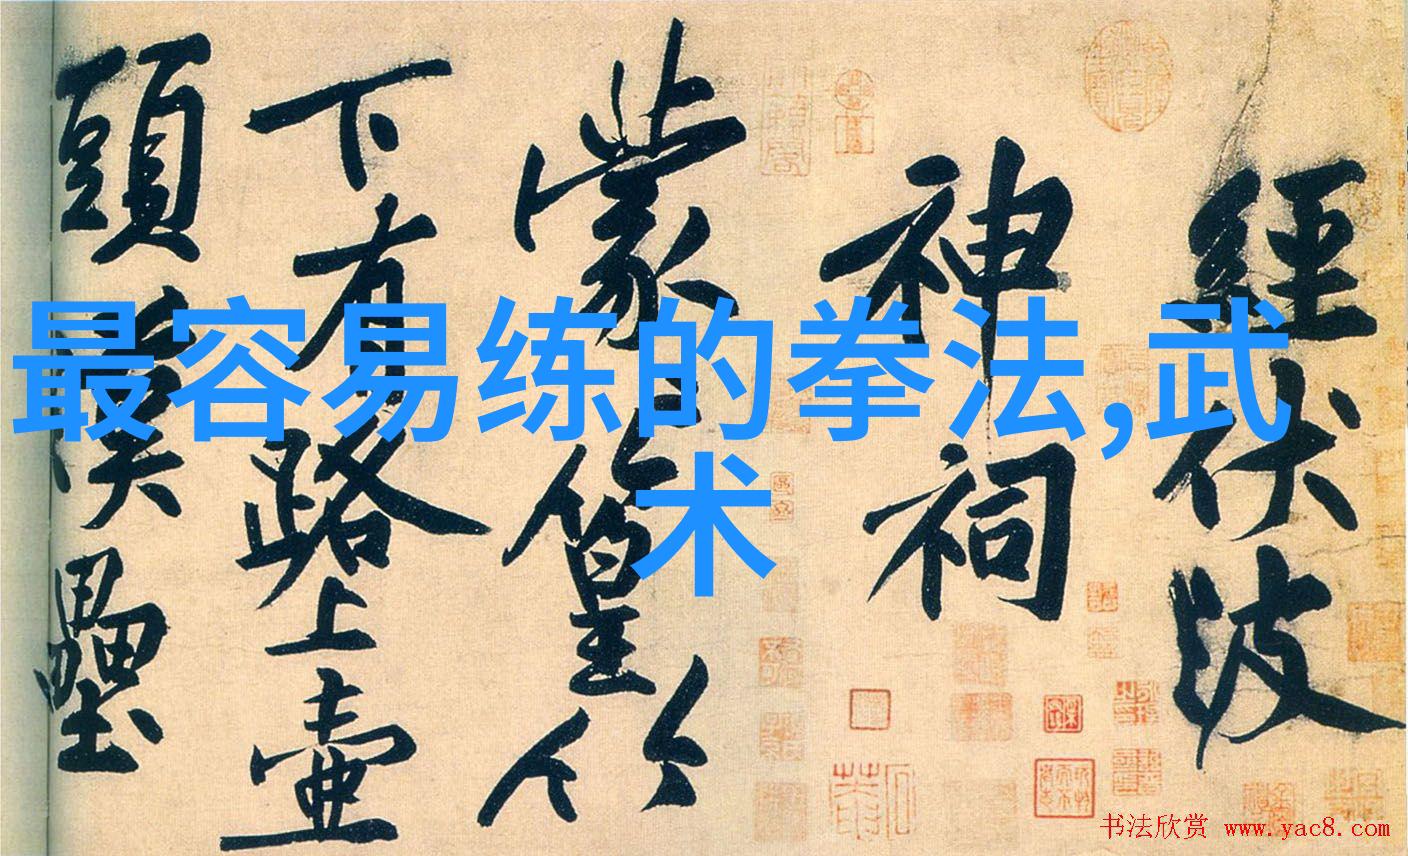 經伏波
神祠
蒙篁竹
下有路上壺
頭漢壘
最容易练的拳法,武
术
书法欣赏 www.yac8.com